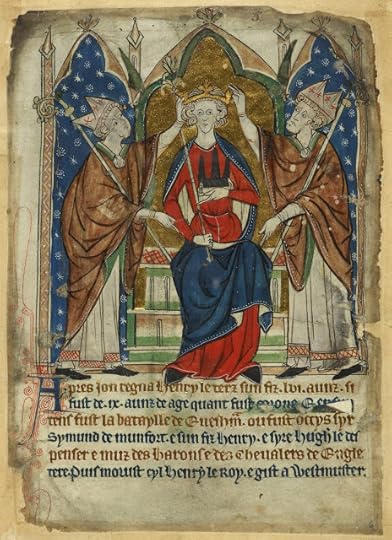 Apres Jon regna Henry le terz sun fiz. lvi. aunz. si
fust de .ix. aunz de age quant fust
tens fust la batayle de Evesham. ou fust occys syr
Symund de munfort. e sun fiz Henry. e syre Hugh le des
penser e muz des barons e des chevalers de Engle
tere. Puis morust cyl Henry le Roy. e gist a Westmuster.